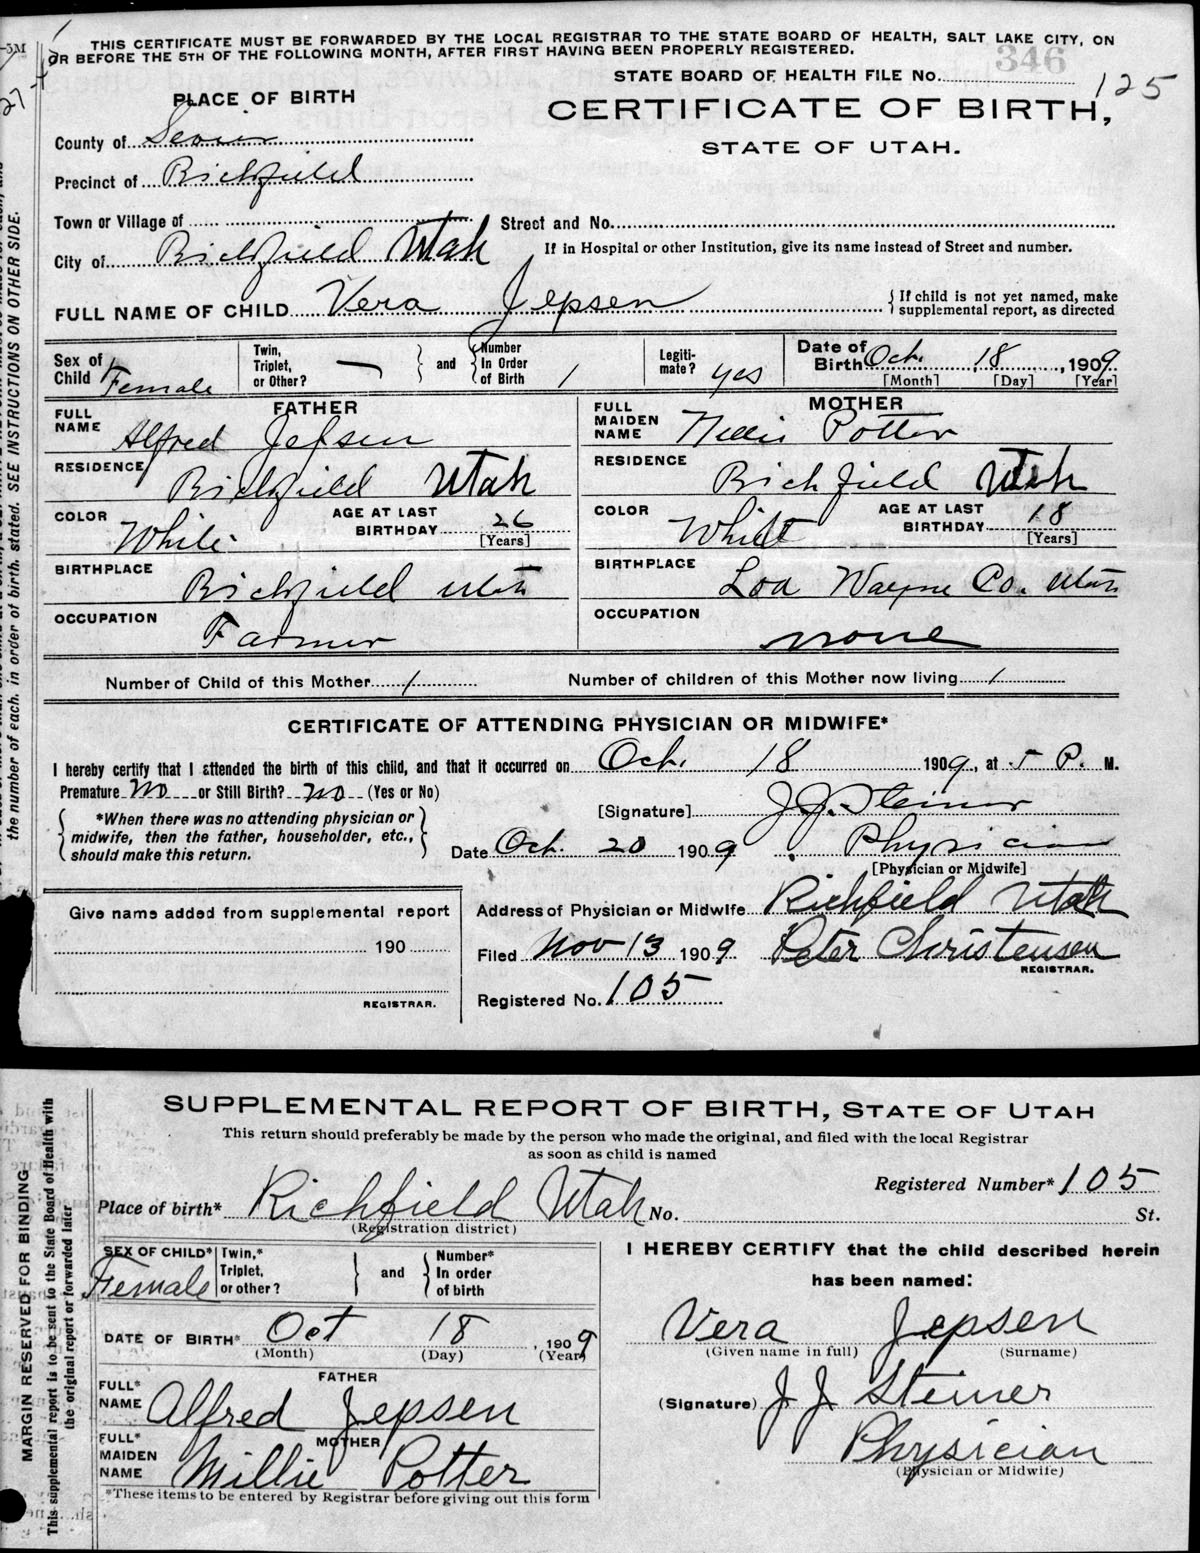 THIS CERTIFICATE MUST BE FORWARDED BY THE LOCAL REGISTRAR TO THE STATE BOARD OF HEALTH, SALT LAKE CITY, ON
OR BEFORE THE 5TH OF THE FOLLOWING MONTH, AFTER FIRST HAVING BEEN PROPERLY REGISTERED.
346
STATE BOARD OF HEALTH FILE No. 125
PLACE OF BIRTH
CERTIFICATE OF BIRTH,
STATE OF UTAH.
County of Sevier
Precinct of Richfield
Town or Village of
Street and No.
City of Richfield Utah
If in Hospital or other Institution, give its name instead of Street and number.
FULL NAME OF CHILD Vera Jepsen
{ If child is not yet named, make supplemental report, as directed
Sex of Child Female
Twin, Triplet, or Other? —
and
Number In Order of Birth 1
Legiti-mate? yes
Date of Birth Oct. 18, 1909
[Month] [Day] [Year]
FATHER
FULL NAME Alfred Jepsen
RESIDENCE Richfield Utah
COLOR White
AGE AT LAST BIRTHDAY 26
[Years]
BIRTHPLACE Richfield Utah
OCCUPATION Farmer
MOTHER
FULL MAIDEN NAME Potter
RESIDENCE Richfield Utah
COLOR White
AGE AT LAST BIRTHDAY 18
[Years]
BIRTHPLACE Loa Wayne Co. Utah
OCCUPATION none
Number of Child of this Mother 1
Number of children of this Mother now living 1
CERTIFICATE OF ATTENDING PHYSICIAN OR MIDWIFE*
I hereby certify that I attended the birth of this child, and that it occurred on Oct. 18 1909, at 5 P. M.
Premature no or Still Birth? no (Yes or No)
*When there was no attending physician or
midwife, then the father, householder, etc.,
should make this return.
[Signature] J. J. Steiner
Date Oct. 20 1909
Physician
[Physician or Midwife]
Give name added from supplemental report
190
REGISTRAR.
Address of Physician or Midwife Richfield Utah
Filed Nov 13 1909 Peter Christensen
REGISTRAR.
Registered No. 105
the number of each, in order of birth, stated. SEE INSTRUCTIONS ON OTHER SIDE.
SUPPLEMENTAL REPORT OF BIRTH, STATE OF UTAH
This return should preferably be made by the person who made the original, and filed with the local Registrar
as soon as child is named
Registered Number* 105
Place of birth* Richfield Utah No. St.
(Registration district)
SEX OF CHILD* Female
Twin,* Triplet, or other?
and
Number* In order of birth
DATE OF BIRTH* Oct 18, 1909
(Month) (Day) (Year)
FATHER
FULL* NAME Alfred Jepsen
MOTHER
FULL* MAIDEN NAME Millie Potter
*These items to be entered by Registrar before giving out this form
I HEREBY CERTIFY that the child described herein
has been named:
Vera Jepsen
(Given name in full) (Surname)
(Signature) J J Steiner
Physician
(Physician or Midwife)
MARGIN RESERVED FOR BINDING
This supplemental report is to be sent to the State Board of Health with
the original report or forwarded later